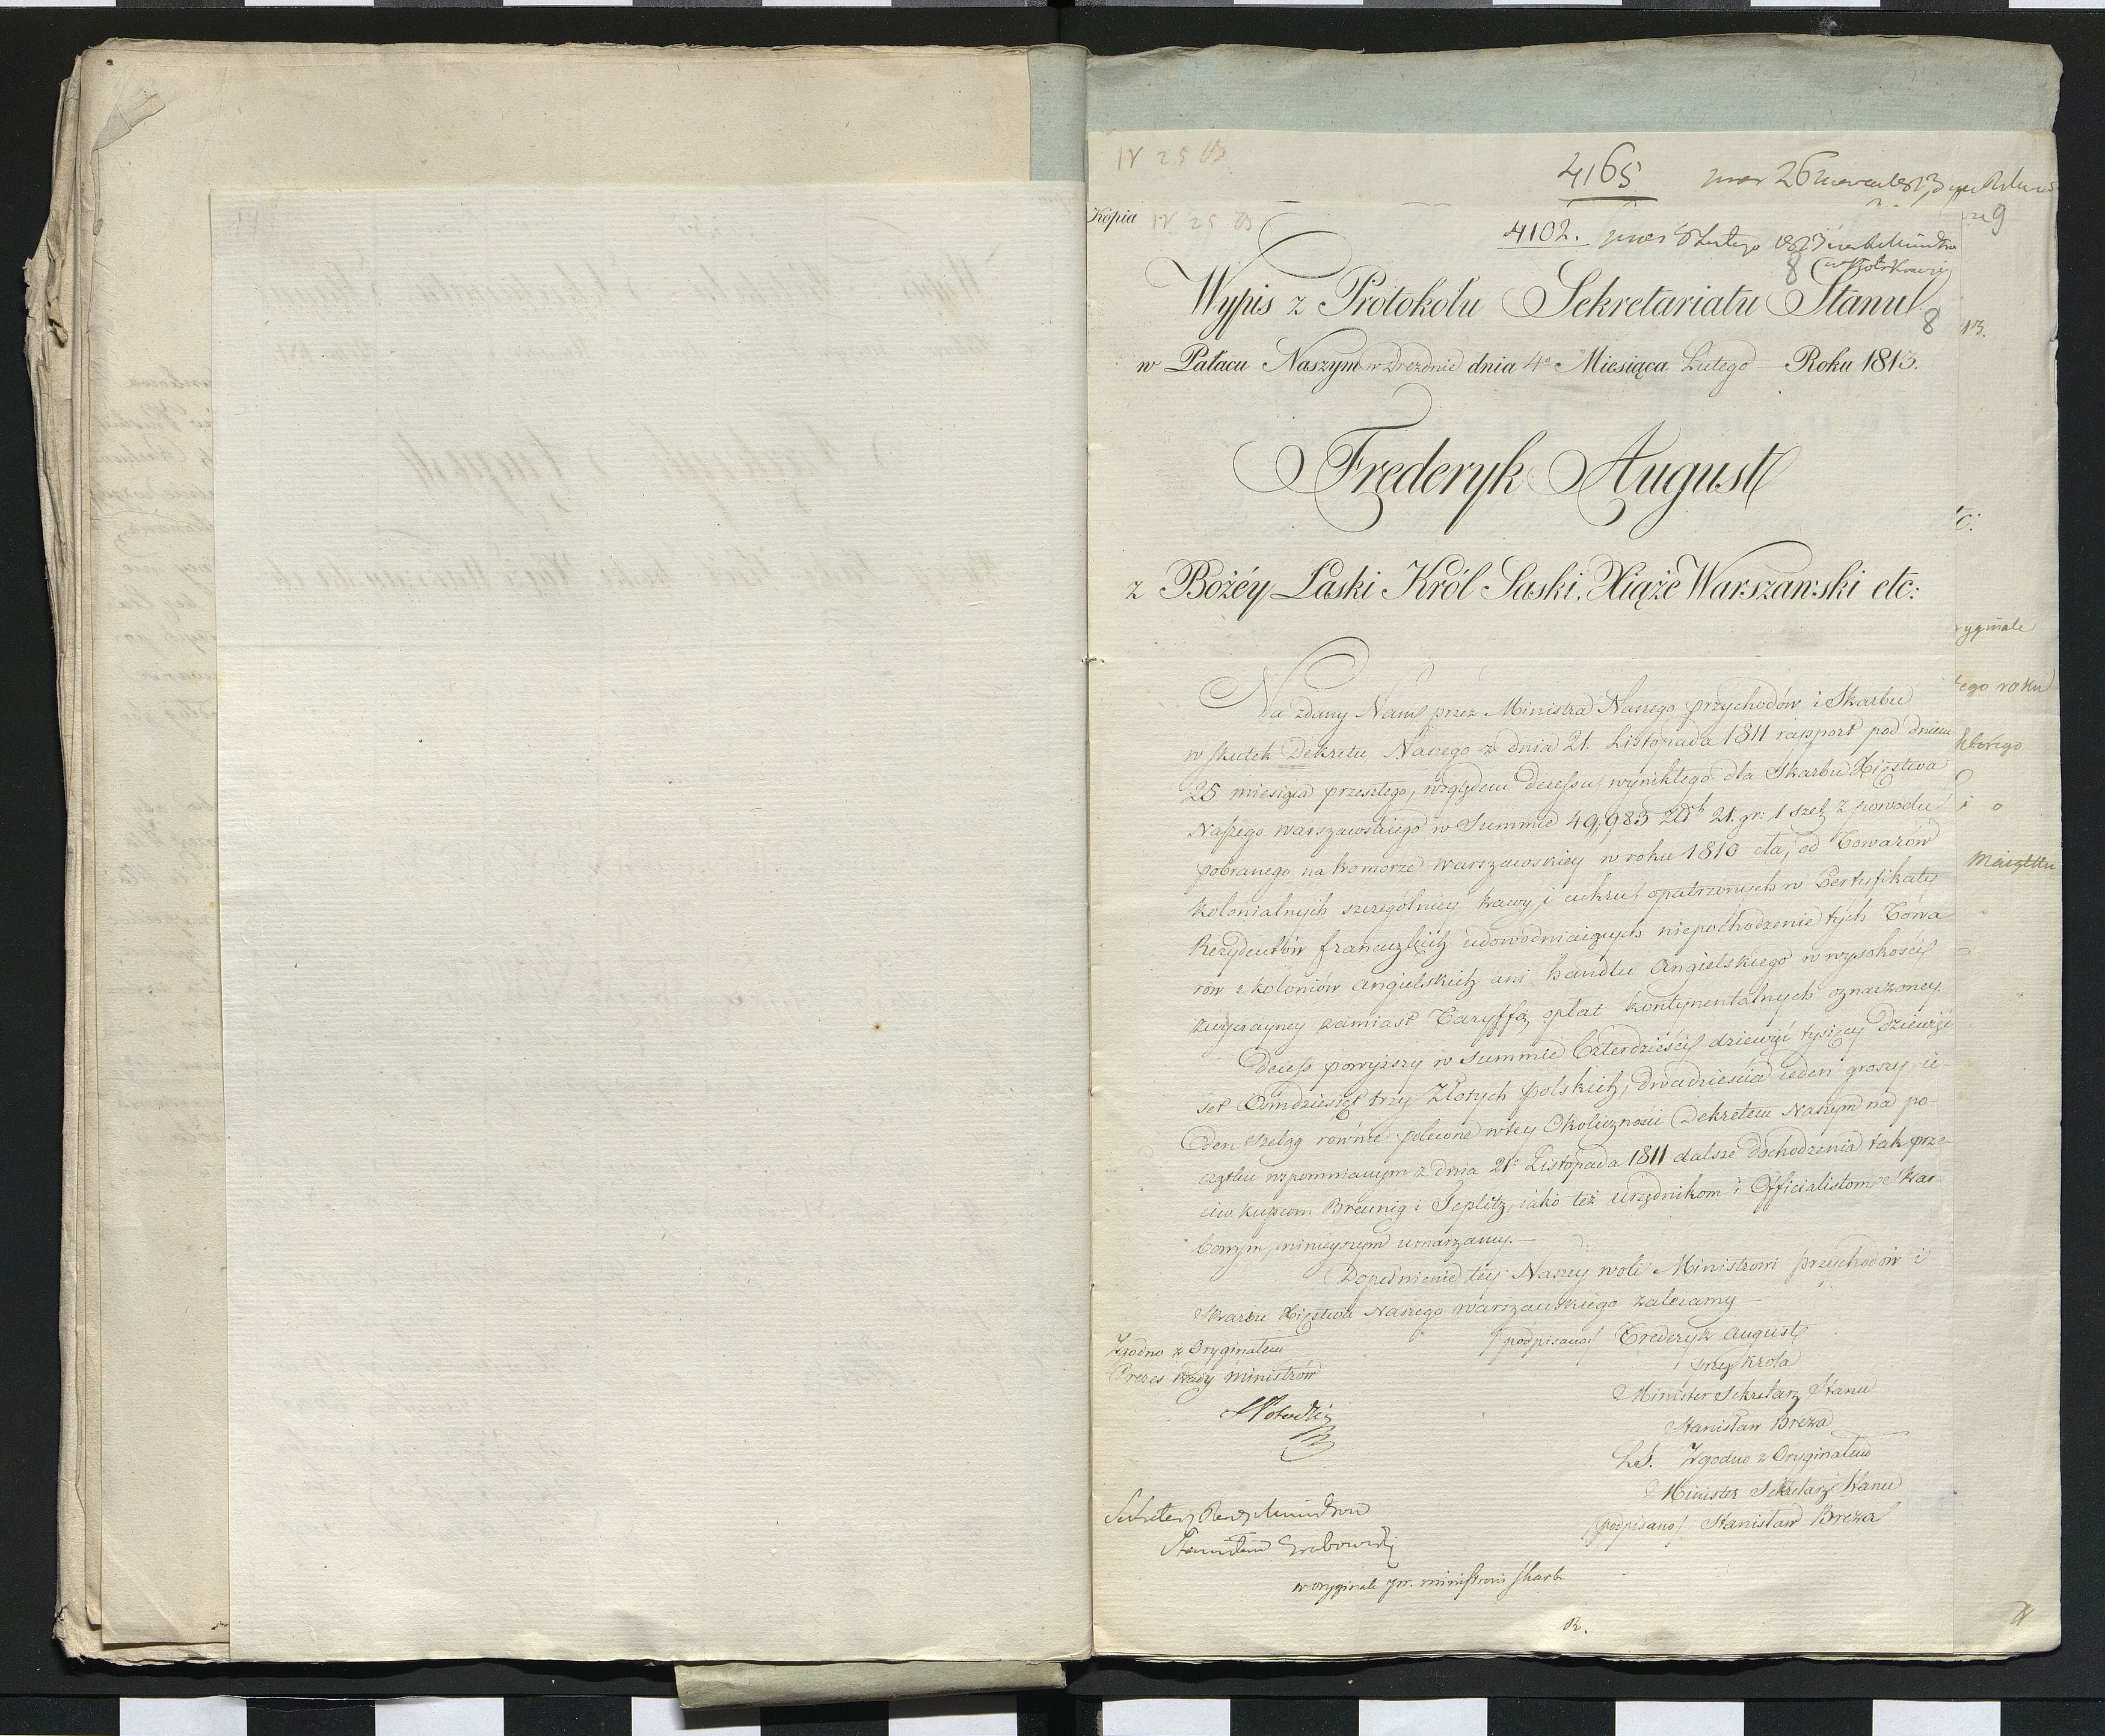 4165
Kopia
4102.
9
8
Wypis z Protokołu Sekretariatu Stanu
8
13.
w Pałacu Naszym w Dreznie dnia 4º Miesiąca Lutego Roku 1813.
Frederyk August
z Bożéy Łaski Król Saski, Xiąże Warszawski etc:
Na zdany Nam przez Ministra Naszego przychodów i Skarbu
w skutek Dekretu Naszego z dnia 21. Listopada 1811 rapport pod dniem
25 miesiąca przeszłego, względem decessu wynikłego dla Skarbu Xięstwa
Naszego warszawskiego w Summie 49,983 Złłch 21. gr: 1 szeł z powodu
pobranego na komorze warszawskiey w roku 1810 cła, od Towarów
kolonialnych szczególniey kawy i cukru, opatrzonych w Certyfikaty
Rezydentów francuzkich udowodniaiących niepochodzenie tych Towa
rów z koloniów angielskich ani handlu Angielskiego w wysokości
zwyczayney zamiast Taryffą opłat kontynentalnych oznaczoney.
Decess powyższy w summie Czterdzieści dziewięć tysięcy Dziewięć
set Ośmdziesiąt trzy Złotych polskich, dwadzieścia ieden groszy, ie-
den szeląg równie polecone w tey Okoliczności Dekretem Naszym na po-
czątku wspomnianym z dnia 21º Listopada 1811 dalsze dochodzenia tak prze-
ciw kupcom Breunig i Teplitz, iako też urzędnikom i Officialistom Skar
bowym, ninieyszym umarzamy.—
Dopełnienie tey Naszey woli Ministrowi przychodów i
Skarbu Xięstwa Naszego warszawskiego zalecamy—
Zgodno z Oryginałem
/podpisano/ Frederyk August
Prezes Rady Ministrów
przez Króla
Minister Sekretarz Stanu
Stanisław Breza
L.S. Zgodno z Oryginałem
Minister Sekretarz Stanu
/podpisano/ Stanisław Breza
Sekretarz Rady Ministrów
Stanisław Grabowski
w oryginale jw. ministrowi skarbu
R.